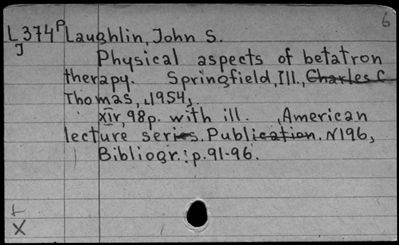 6
L374P Laughlin, John S.
J
Physical aspects of betatron
therapy. Springfield, Ill., Charles C
Thomas, 1954,
xiv, 98p. with ill. American
lecture series. Publication. N196,
Bibliogr.: p.91-96.
X